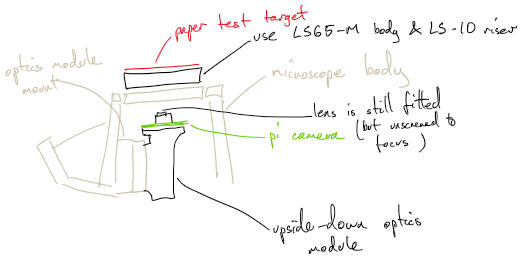 paper test target
use LS65-M body & LS-10 riser
optics module
mount
microscope body
lens is still fitted
(but unscrewed to
focus)
pi camera
upside-down optics
module